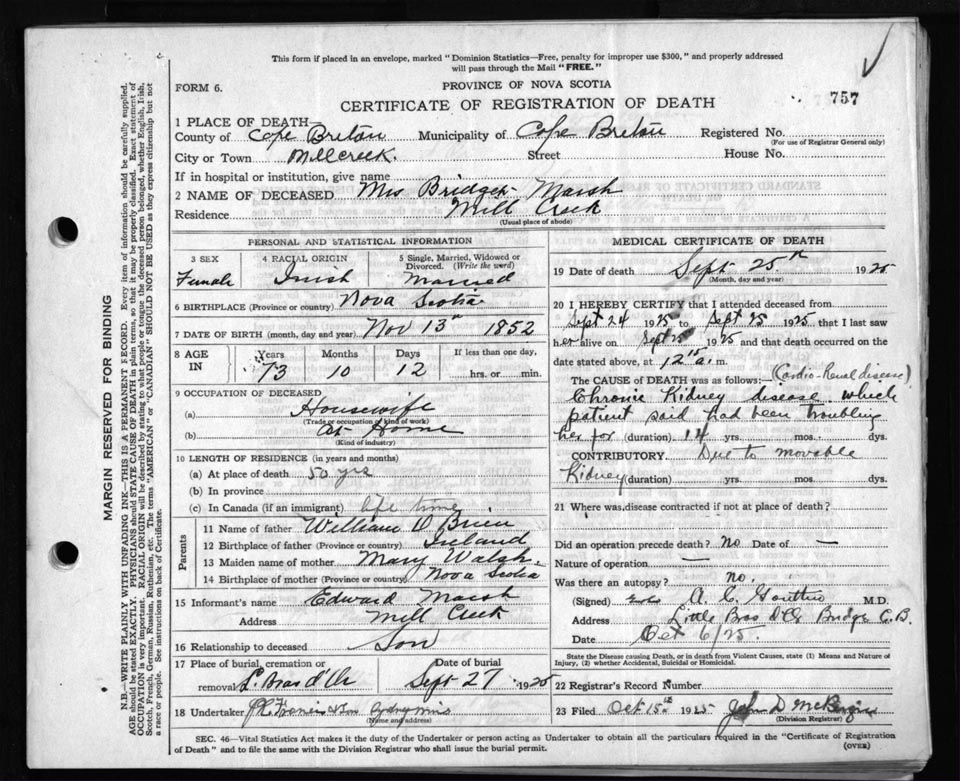 This form if placed in an envelope, marked "Dominion Statistics—Free, penalty for improper use $300," and properly addressed
will pass through the Mail "FREE."
FORM 6.
PROVINCE OF NOVA SCOTIA
CERTIFICATE OF REGISTRATION OF DEATH
757
1 PLACE OF DEATH
County of Cape Breton Municipality of Cape Breton Registered No.
(For use of Registrar General only)
City or Town Mill creek. Street House No.
If in hospital or institution, give name
2 NAME OF DECEASED Mrs Bridget Marsh
Residence Mill Creek
(Usual place of abode)
PERSONAL AND STATISTICAL INFORMATION
3 SEX 4 RACIAL ORIGIN 5 Single, Married, Widowed or
Divorced. (Write the word)
Female Irish Married
6 BIRTHPLACE (Province or country) Nova Scotia
7 DATE OF BIRTH (month, day and year) Nov 13th 1852
8 AGE IN Years Months Days If less than one day,
73 10 12 hrs. or min.
9 OCCUPATION OF DECEASED
(a) Housewife
(Trade or occupation of kind of work)
(b) At Home
(Kind of industry)
10 LENGTH OF RESIDENCE (in years and months)
(a) At place of death 50 yrs
(b) In province
(c) In Canada (if an immigrant) life time
Parents
11 Name of father William O Brien
12 Birthplace of father (Province or country) Ireland
13 Maiden name of mother Mary Walsh.
14 Birthplace of mother (Province or country) Nova Scotia
15 Informant's name Edward Marsh
Address Mill Creek
16 Relationship to deceased Son
17 Place of burial, cremation or Date of burial
removal L. Bras d'Or Sept 27 1925
18 Undertaker
(Name and address)
MEDICAL CERTIFICATE OF DEATH
19 Date of death Sept 25th 1925
(Month, day and year)
20 I HEREBY CERTIFY that I attended deceased from
Sept 24 1925 to Sept 25 1925 that I last saw
her alive on Sept 25 1925 and that death occurred on the
date stated above, at 12 15 a. m.
The CAUSE OF DEATH was as follows:— (Cardio-Renal disease)
Chronic Kidney disease which
patient said had been troubling
her for (duration) 14 yrs. mos. dys.
CONTRIBUTORY Due to movable
Kidney (duration) yrs. mos. dys.
21 Where was disease contracted if not at place of death?
Did an operation precede death? No Date of —
Nature of operation —
Was there an autopsy? No.
(Signed) A. C. Gouthro M.D.
Address Little Bras D'Or Bridge C.B.
Date Oct 6/25.
State the Disease causing Death, or in death from Violent Causes, state (1) Means and Nature of
Injury, (2) whether Accidental, Suicidal or Homicidal.
22 Registrar's Record Number
23 Filed Oct 15th 1925 John D McKenzie
(Division Registrar)
SEC. 46—Vital Statistics Act makes it the duty of the Undertaker or person acting as Undertaker to obtain all the particulars required in the "Certificate of Registration
of Death" and to file the same with the Division Registrar who shall issue the burial permit.
(OVER)
MARGIN RESERVED FOR BINDING
N.B.—WRITE PLAINLY WITH UNFADING INK—THIS IS A PERMANENT RECORD. Every item of information should be carefully supplied.
AGE should be stated EXACTLY. PHYSICIANS should STATE CAUSE OF DEATH in plain terms, so that it may be properly classified. Exact statement of
OCCUPATION is very important. RACIAL ORIGIN will be described by stating to what people or tongue the deceased person belonged, whether English, Irish,
Scotch, French, German, Russian, Ruthenian, etc. The terms "AMERICAN" or "CANADIAN" SHOULD NOT BE USED as they express citizenship but not
a race or people. See instructions on back of Certificate.